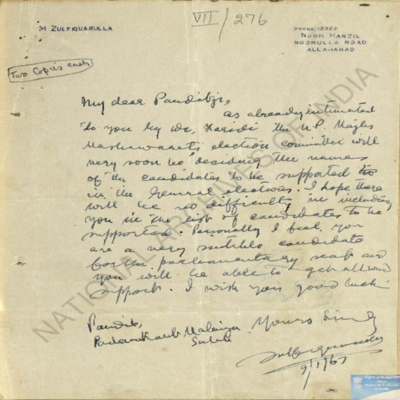 VII / 276
ZULFIQUARULLA
PHONE:
NOOR MANZIL
NOORULLA ROAD
ALLAHABAD
Two Copies each
My dear Panditji,
as already intimated
to you by Dr. Faridi the U.P. Majlis
Mushawarat's election committee will
very soon be deciding the names
of the candidates to be supported
in the General elections. I hope there
will be no difficulty in including
you in the list of candidates to be
supported. Personally I feel, you
are a very suitable candidate
for the parliamentary seat and
you will be able to get all round
support. I wish you good luck.
Pandit Yours Sincly
Padam Kant Malaviya
Zulfiquarulla
9/1/67
NATIONAL ARCHIVES OF INDIA